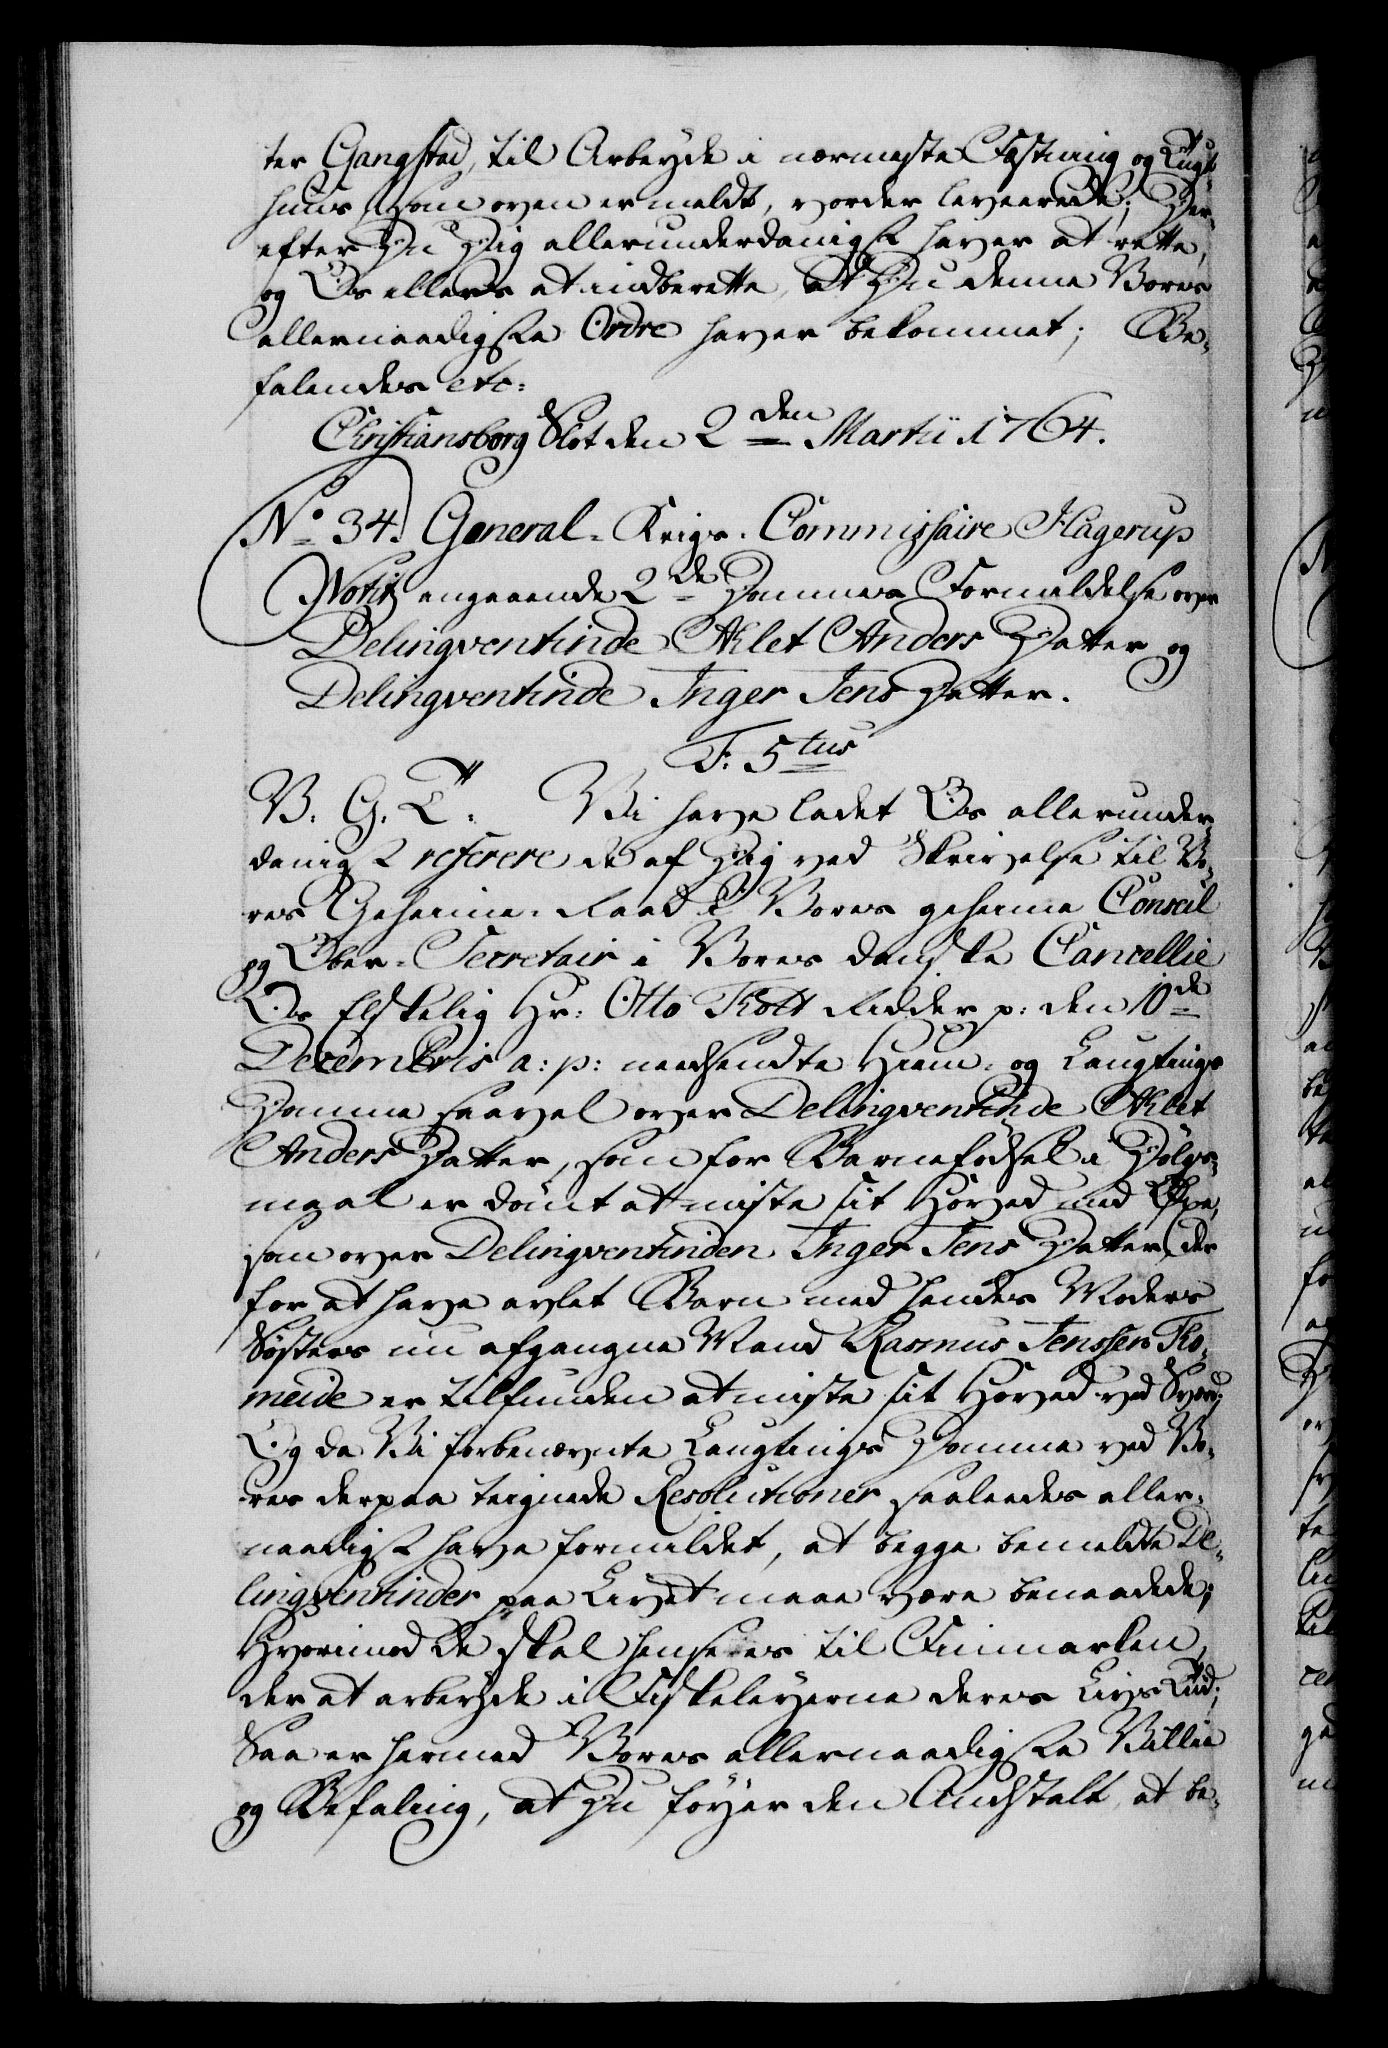 ter Gangstad, til Arbeyde i nærmeste Fæstning og Tugt-
huus, som oven er meldt, vorder leveerede; Der-
efter Du Dig allerunderdanigst haver at rette,
og Os ellers at indberette, at Du denne Vores
allernaadigste Ordre haver bekommet; Be-
falendes etc:
Christiansborg Slot den 2den Martii 1764.
No 34. General-Krigs-Commissaire Hagerup
Notits angaaende 2de Dommes Formildelse over
Delinqventinde Ahlet Anders Datter og
Delinqventinde Inger Jens Datter.
F: 5tus
V. G. T. Vi have ladet Os allerunder-
danigst referere de af Dig ved Skrivelse til Vo-
res Geheime-Raad i Vores geheime Conseil
og Ober-Secretair i Vores danske Cancellie
Os Elskelig Hr: Otto Thott Ridder p: den 10de
Decembris a: p: needsendte Hiem- og Laugtings
Domme saavel over Delinqventinde Ahlet
Anders Datter, som for Barnefödsel i Dölgs-
maal er dömt at miste sit Hoved med Öxe,
som over Delinqventinden Inger Jens Datter, der
for at have avlet Barn med hendes Moders
Søsters nu afgangne Mand Rasmus Jenssen Ro-
meide er tilfunden at miste sit Hoved ved Sværd;
Og da Vi forbenævnte Laugtings Domme ved Vo-
res derpaa teignede Resolutioner saaledes aller-
naadigst have formildet, at begge bemeldte De-
linqventinder paa Livet maae være benaadede;
Hvorimod de skal henseees til Finmarken,
der at arbeyde i Fiskeleyerne deres Livs Tid;
Saa er hermed Vores allernaadigste Villie
og Befaling, at Du föyer den Anstalt, at be-